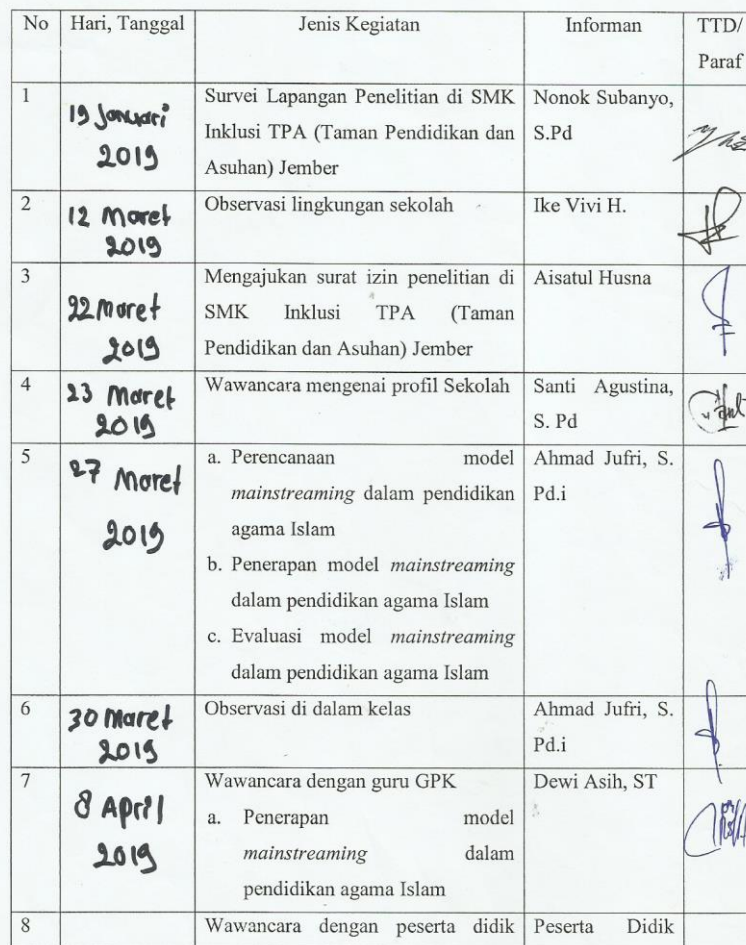 No Hari, Tanggal Jenis Kegiatan Informan TTD/
Paraf
1 19 Januari 2019 Survei Lapangan Penelitian di SMK Nonok Subanyo,
Inklusi TPA (Taman Pendidikan dan S.Pd
Asuhan) Jember
2 12 Maret 2019 Observasi lingkungan sekolah Ike Vivi H.
3 22 Maret 2019 Mengajukan surat izin penelitian di Aisatul Husna
SMK Inklusi TPA (Taman
Pendidikan dan Asuhan) Jember
4 23 Maret 2019 Wawancara mengenai profil Sekolah Santi Agustina,
S. Pd
5 27 Maret 2019 a. Perencanaan model Ahmad Jufri, S.
mainstreaming dalam pendidikan Pd.i
agama Islam
b. Penerapan model mainstreaming
dalam pendidikan agama Islam
c. Evaluasi model mainstreaming
dalam pendidikan agama Islam
6 30 Maret 2019 Observasi di dalam kelas Ahmad Jufri, S.
Pd.i
7 8 April 2019 Wawancara dengan guru GPK Dewi Asih, ST
a. Penerapan model
mainstreaming dalam
pendidikan agama Islam
8 Wawancara dengan peserta didik Peserta Didik